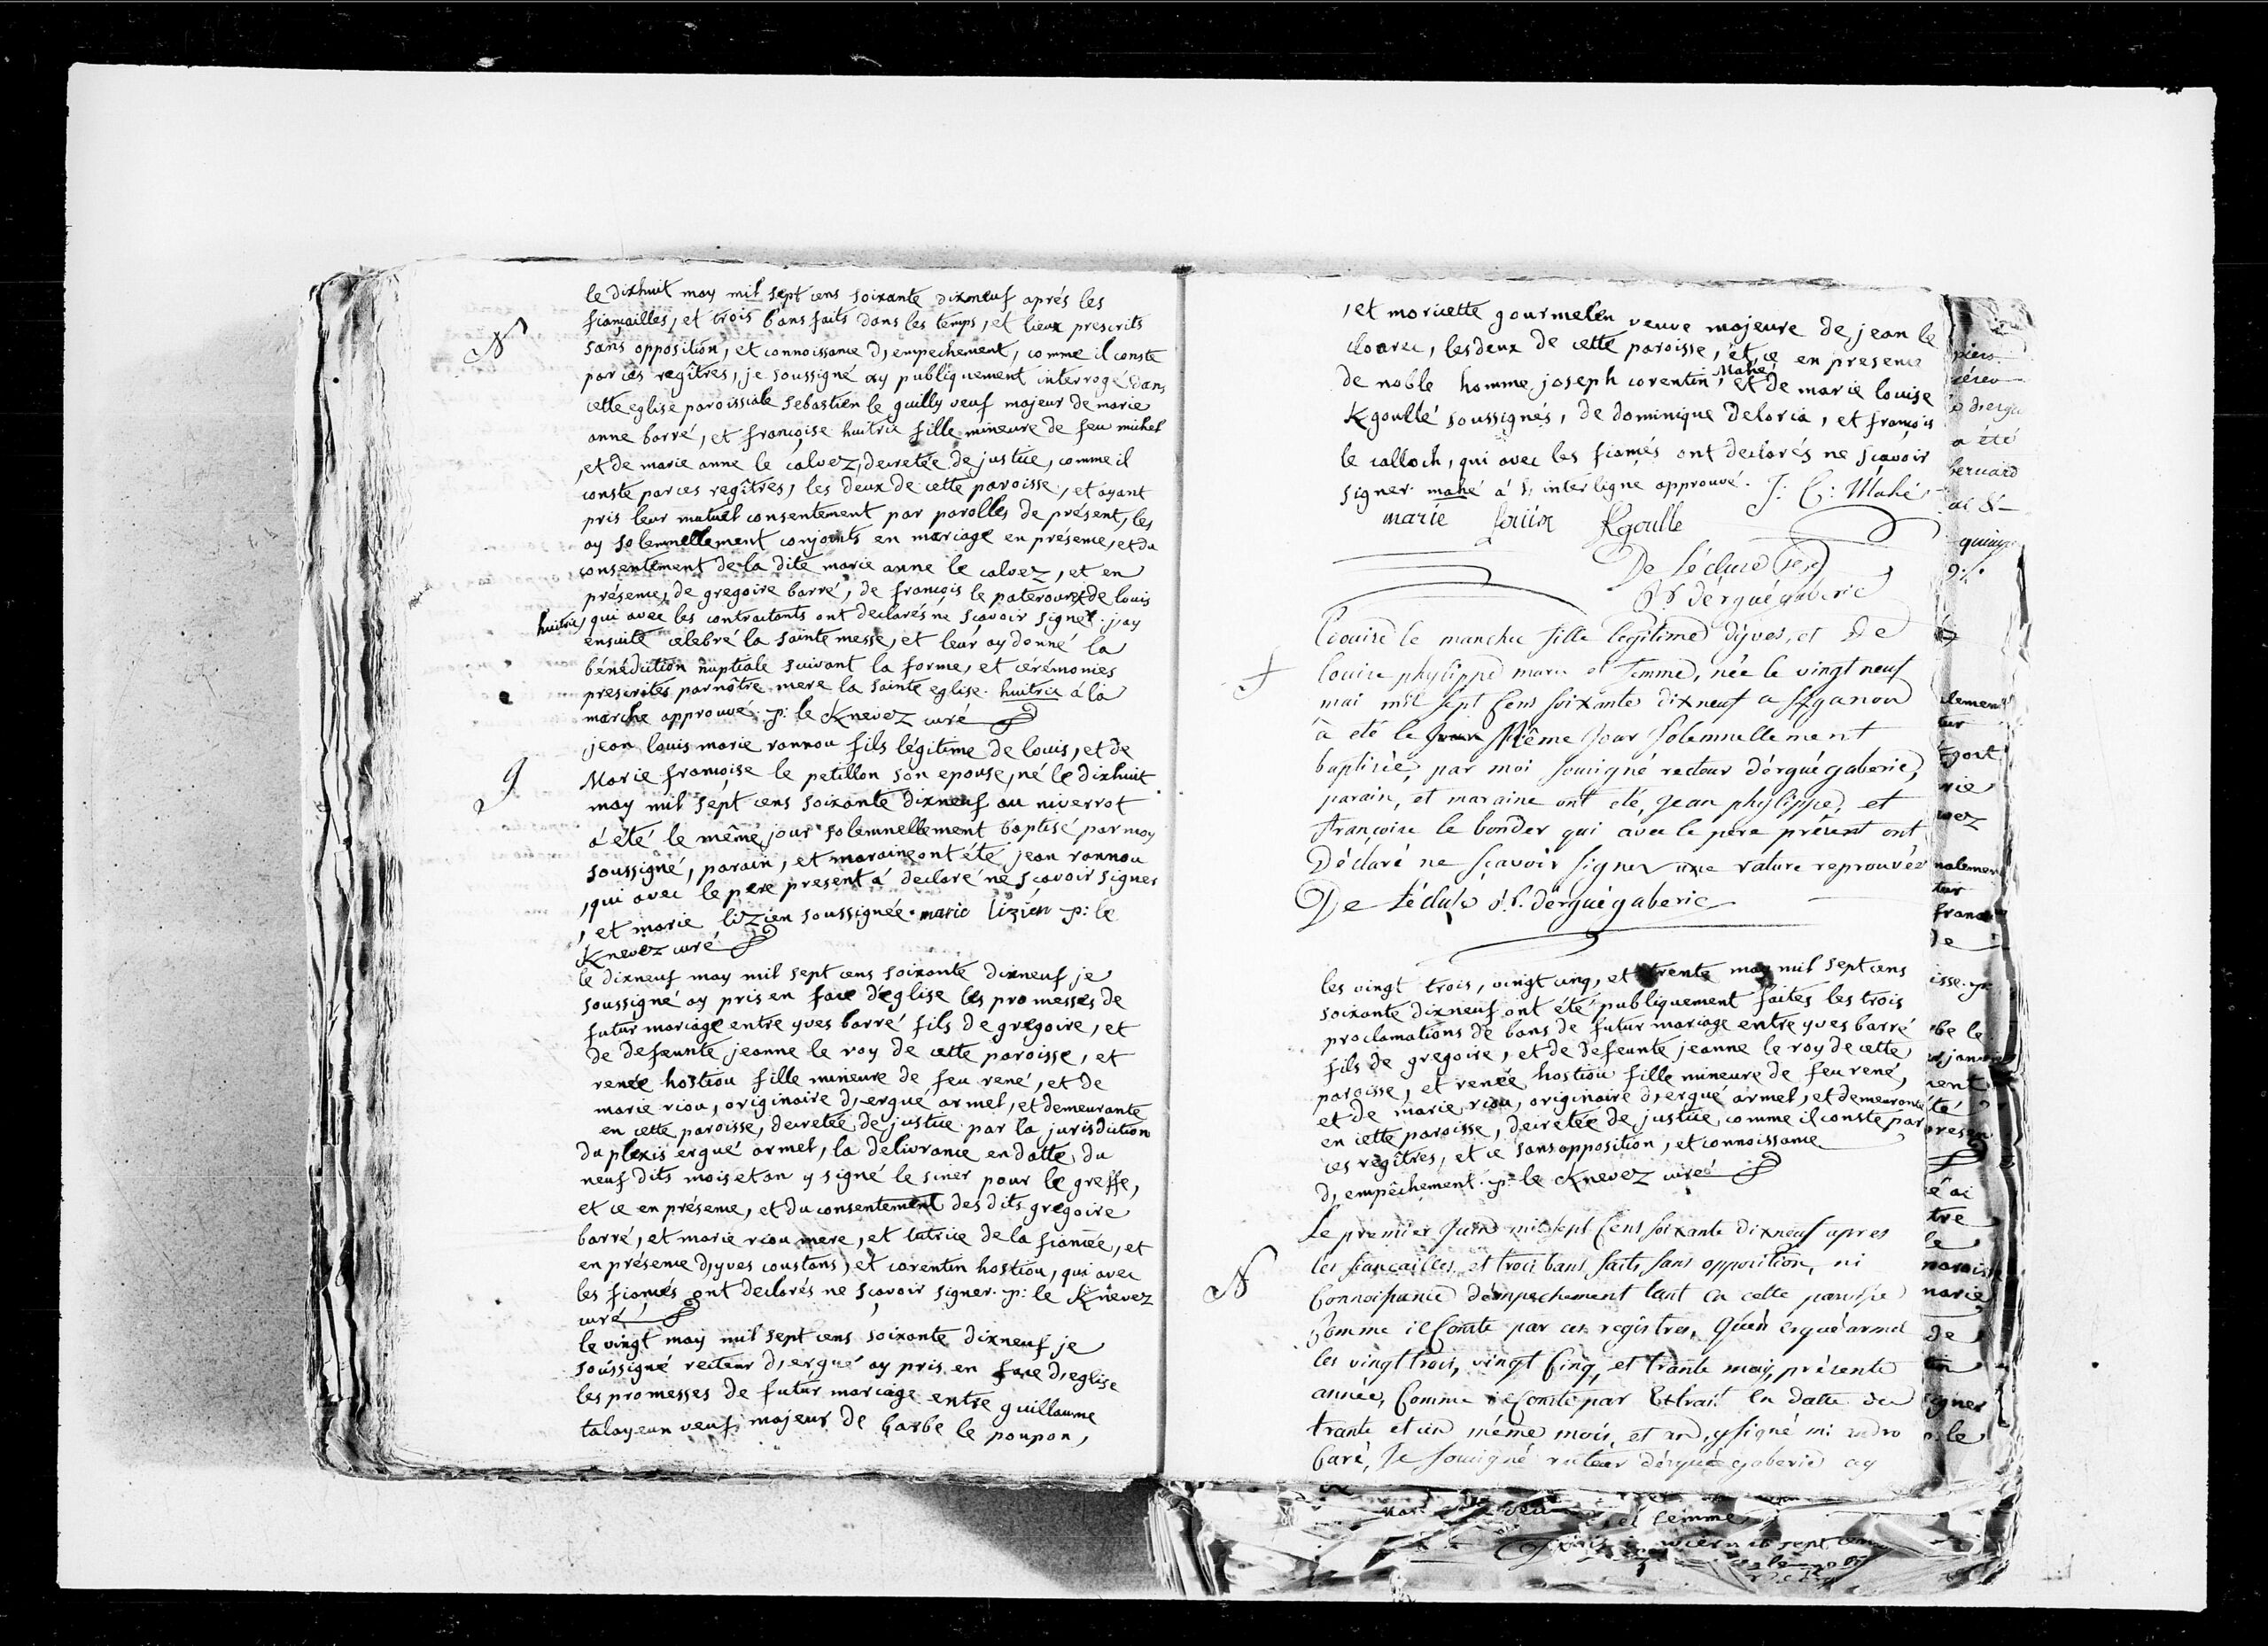 le dixhuit may mil sept cens soixante dixneuf aprés les
N
fiançailles, et trois bans faits dans les temps, et lieux prescrits
sans opposition, et connoissance d'empechement, comme il conste
par ces regîtres, je soussigné ay publiquement interrogé dans
cette eglise paroissiale sebastien le guilly veuf majeur de marie
anne barré, et françoise huitric fille mineure de feu michel
, et de marie anne le calvez, decretée de justice, comme il
conste par ces regîtres, les deux de cette paroisse, et ayant
pris leur mutuel consentement par parolles de présent, les
ay solemnellement conjoints en mariage en présence, et du
consentement de la dite marie anne le calvez, et en
présence, de gregoire barré, de françois le paterour et de louis
huitric, qui avec les contractants ont declarés ne sçavoir signer. j'ay
ensuite célébré la sainte messe, et leur ay donné la
bénédiction nuptiale suivant la forme, et cerémonies
prescrites par nôtre mere la sainte eglise. huitric á la
marche approuvé. p: le Knevez curé
jean louis marie rannou fils légitime de louis, et de
9
Marie françoise le petillon son epouse, né le dixhuit
may mil sept cens soixante dixneuf au niverrot
á été le même jour solemnellement baptisé par moy
soussigné, parain, et maraine ont été jean rannou
, qui avec le pere present á declaré ne sçavoir signer
, et marie lizien soussignée. marie lizien p: le
Knevez curé
le dixneuf may mil sept cens soixante dixneuf je
soussigné ay pris en face d'eglise les promesses de
futur mariage entre yves barré fils de gregoire, et
de defeunte jeanne le roy de cette paroisse, et
renée hostiou fille mineure de feu rené, et de
marie riou, originaire d'ergué armel, et demeurante
en cette paroisse, decretée de justice par la jurisdiction
du plexis ergué armel, la delivrance en datte du
neuf dits mois et an y signé le siner pour le greffe,
et ce en présence, et du consentement des dits gregoire
barré, et marie riou mere, et tutrice de la fiancée, et
en présence d'yves coustans, et corentin hostiou, qui avec
les fiancés ont declarés ne sçavoir signer. p: le Knevez
curé
le vingt may mil sept cens soixante dixneuf je
soussigné recteur d'ergué ay pris en face d'eglise
les promesses de futur mariage entre guillaume
talayeun veuf majeur de barbe le poupon,
, et moricette gourmelen veuve majeure de jean le
cloarec, les deux de cette paroisse, et ce en presence
de noble homme joseph corentin Mahé, et de marie louise
Kgoullé soussignés, de dominique deloria, et françois
le calloch, qui avec les fiancés ont declarés ne sçavoir
signer. mahé á l'interligne approuvé. J: C: Mahé
marie Louise Kgoulle
De Lécluse
d'érgué gaberic
Louise le manchec fille legitime d'yves, et de
louise phylippe mari et femme, née le vingt neuf
mai mil sept cens soixante dixneuf a
à été le Même jour solemnellement
baptisée, par moi soussigné recteur d'érgué gaberic,
parain, et maraine ont été, jean phylippe, et
françoise le bonder qui avec le père présent ont
Déclaré ne sçavoir signer une rature reprouvée
De Lécluse r. d'érgué gaberic
les vingt trois, vingt cinq, et trente may mil sept cens
soixante dixneuf ont été publiquement faites les trois
proclamations de bans de futur mariage entre yves barré
fils de gregoire, et de defeunte jeanne le roy de cette
paroisse, et renée hostiou fille mineure de feu rené,
et de marie riou, originaire d'ergué armel, et demeurante
en cette paroisse, decretée de justice comme il conste par
ces regîtres, et ce sans opposition, et connoissance
d'empêchement. p: le Knevez curé
Le premier juin mil sept cens soixante dixneuf apres
les fiançailles, et trois bans faits sans opposition, ni
N
connoissance d'empechement tant en cette paroisse
comme il conste par ces registres, qu'en ergué armel
les vingt trois, vingt cinq, et trante may, présente
année, comme il conste par Extrait en datte du
trante et un même mois, et an, y signé
baré, Je soussigné recteur d'érgué gaberic ay